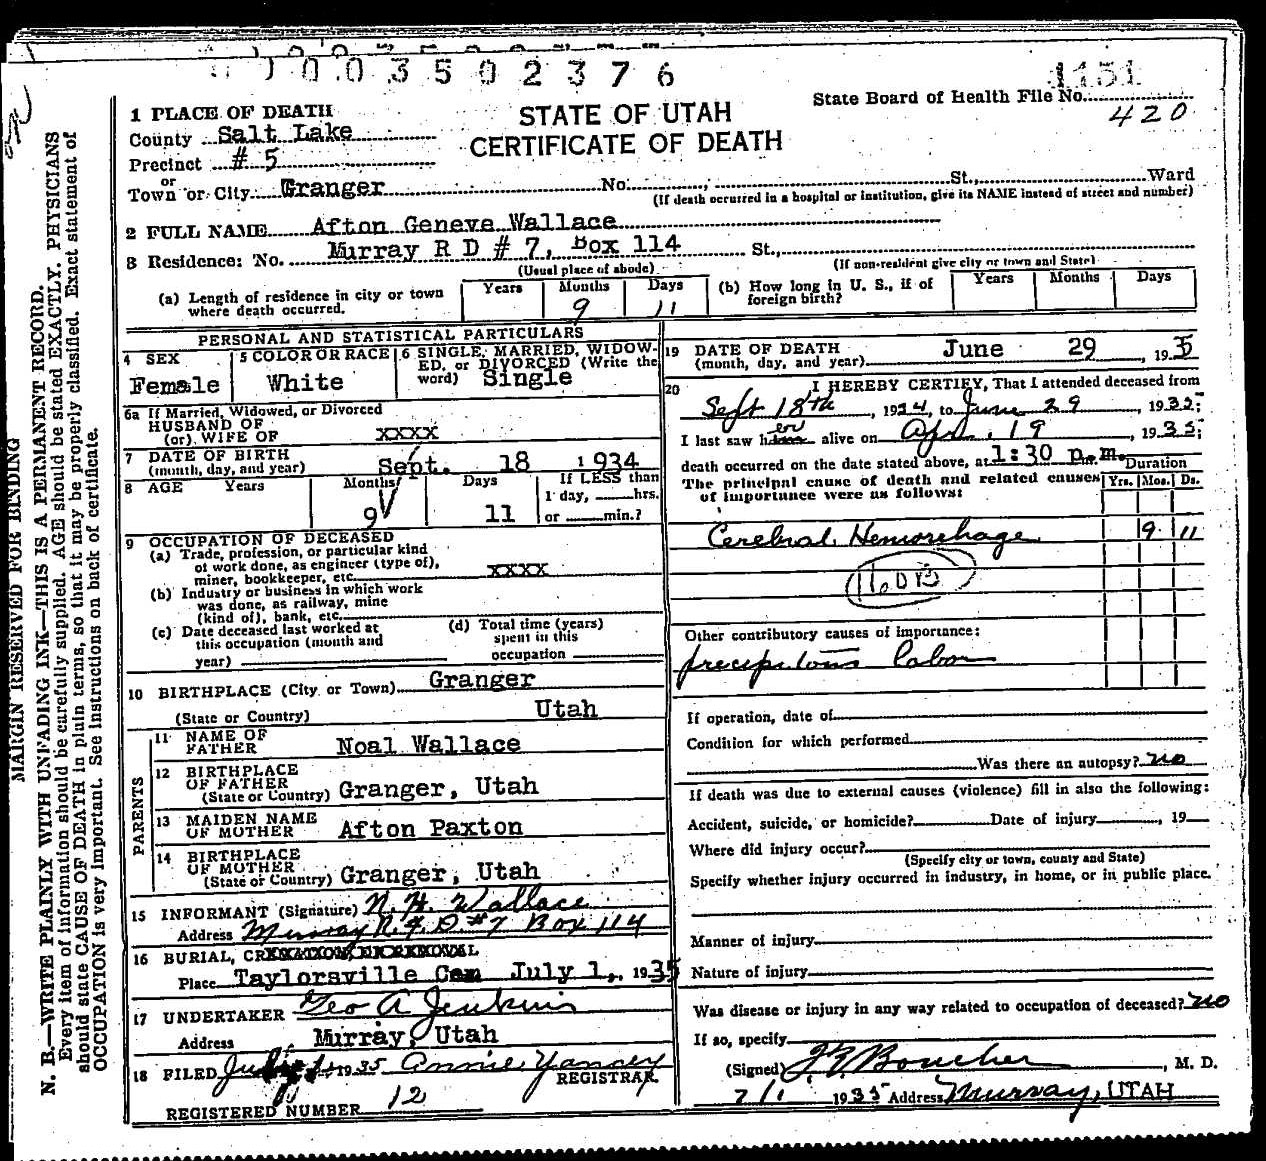 0003502376
1151
STATE OF UTAH
CERTIFICATE OF DEATH
State Board of Health File No.
420
1 PLACE OF DEATH
County Salt Lake
Precinct # 5
or
Town or City Granger No. St., Ward
(If death occurred in a hospital or institution, give its NAME instead of street and number)
2 FULL NAME Afton Geneve Wallace
3 Residence: No. Murray R D # 7, Box 114 St.,
(Usual place of abode) (If non-resident give city or town and State)
(a) Length of residence in city or town where death occurred. Years Months 9 Days 11
(b) How long in U. S., if of foreign birth? Years Months Days
PERSONAL AND STATISTICAL PARTICULARS
4 SEX Female
5 COLOR OR RACE White
6 SINGLE, MARRIED, WIDOWED, or DIVORCED (Write the word) Single
6a If Married, Widowed, or Divorced
HUSBAND OF
(or) WIFE OF xxxx
7 DATE OF BIRTH
(month, day, and year) Sept. 18 1934
8 AGE Years Months 9 Days 11 If LESS than 1 day, hrs. or min.?
9 OCCUPATION OF DECEASED
(a) Trade, profession, or particular kind
of work done, as engineer (type of),
miner, bookkeeper, etc. xxxx
(b) Industry or business in which work
was done, as railway, mine
(kind of), bank, etc.
(c) Date deceased last worked at
this occupation (month and
year)
(d) Total time (years)
spent in this
occupation
10 BIRTHPLACE (City or Town) Granger
(State or Country) Utah
PARENTS
11 NAME OF
FATHER Noal Wallace
12 BIRTHPLACE
OF FATHER
(State or Country) Granger, Utah
13 MAIDEN NAME
OF MOTHER Afton Paxton
14 BIRTHPLACE
OF MOTHER
(State or Country) Granger, Utah
15 INFORMANT (Signature) N. H. Wallace
Address Murray R. F. D. #7 Box 114
16 BURIAL, CREMATION, OR REMOVAL
Place Taylorsville Cem July 1, 1935
17 UNDERTAKER Geo A Jenkins
Address Murray, Utah
18 FILED July 1 1935 Annie Yancey
REGISTRAR.
REGISTERED NUMBER 12
19 DATE OF DEATH
(month, day, and year) June 29, 1935
20 I HEREBY CERTIFY, That I attended deceased from
Sept 18th, 1934, to June 29, 1935;
I last saw her alive on Apr. 19, 1935;
death occurred on the date stated above, at 1:30 p.m.
The principal cause of death and related causes
of importance were as follows:
Duration
Yrs. Mos. Ds.
Cerebral Hemorrhage 9 11
Other contributory causes of importance:
precipitous labor
If operation, date of
Condition for which performed
Was there an autopsy? no
If death was due to external causes (violence) fill in also the following:
Accident, suicide, or homicide? Date of injury , 19
Where did injury occur?
(Specify city or town, county and State)
Specify whether injury occurred in industry, in home, or in public place.
Manner of injury
Nature of injury
Was disease or injury in any way related to occupation of deceased? no
If so, specify
(Signed) Boucher, M. D.
7/1 1935 Address Murray, UTAH
MARGIN RESERVED FOR BINDING
N. B.—WRITE PLAINLY WITH UNFADING INK—THIS IS A PERMANENT RECORD.
Every item of information should be carefully supplied. AGE should be stated EXACTLY. PHYSICIANS
should state CAUSE OF DEATH in plain terms, so that it may be properly classified. Exact statement of
OCCUPATION is very important. See instructions on back of certificate.